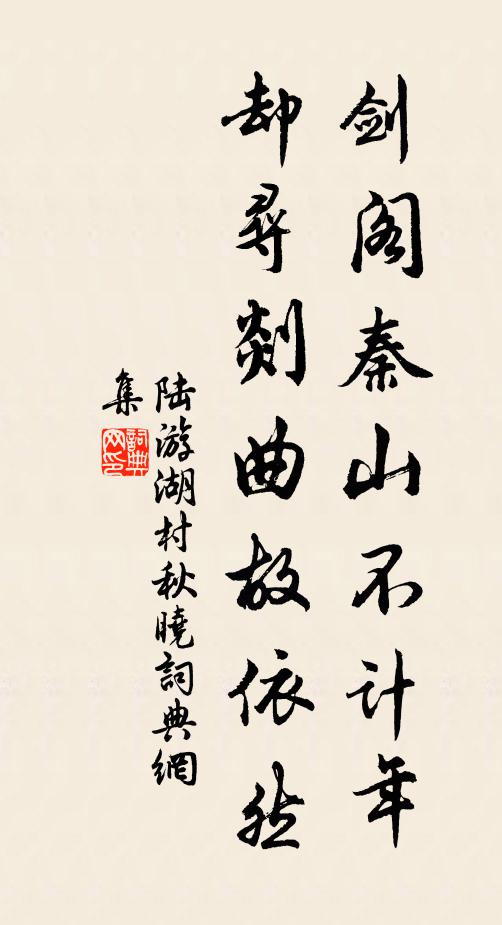 剑阁秦山不计年
却寻剡曲故依然
陆游湖村秋曉詞典網
集
詞典网印